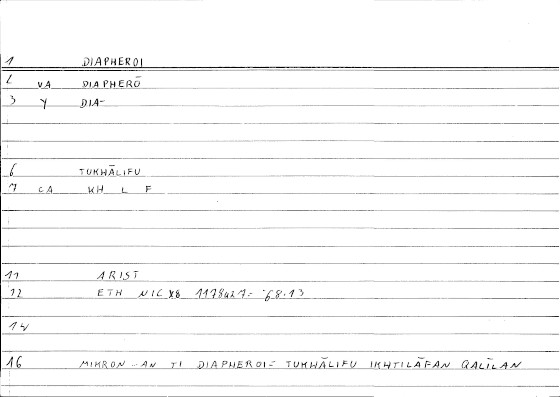 1 DIAPHEROI
2 VA DIAPHERŌ
3 Y DIA-
6 TUKHĀLIFU
7 CA KH L F
11 ARIST
12 ETH NIC 1178a27= 68.13
14
16 MIKRON - AN TI DIAPHEROI = TUKHĀLIFU IKHTILĀFAN QALĪLAN